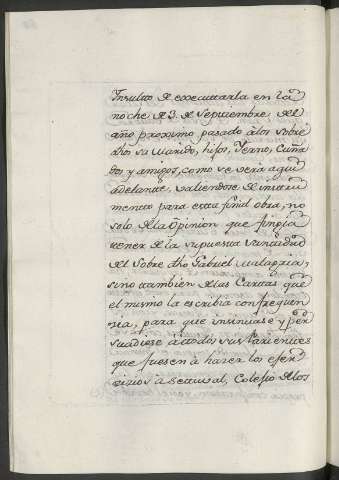 Insulto de executarla en la
noche de 3 de Septiembre del
año proximo pasado â los sobre
dhos su Marido, hijos, Yerno, Cuña
dos y amigos, como se verà aqui
adelante, valiendose de instru
mento para esta final obra, no
solo de la Opinion que fingia
tener de la supuesta Santidad
del Sobre dho Gabriel Malagrida
sino tambien de las Cartas que
el mismo la escribia con frequen
sia, para que insinuase y per
suadiese a todos sus Parientes
que fuesen à hazer los exer
cicios à Settuval, Colegio de los